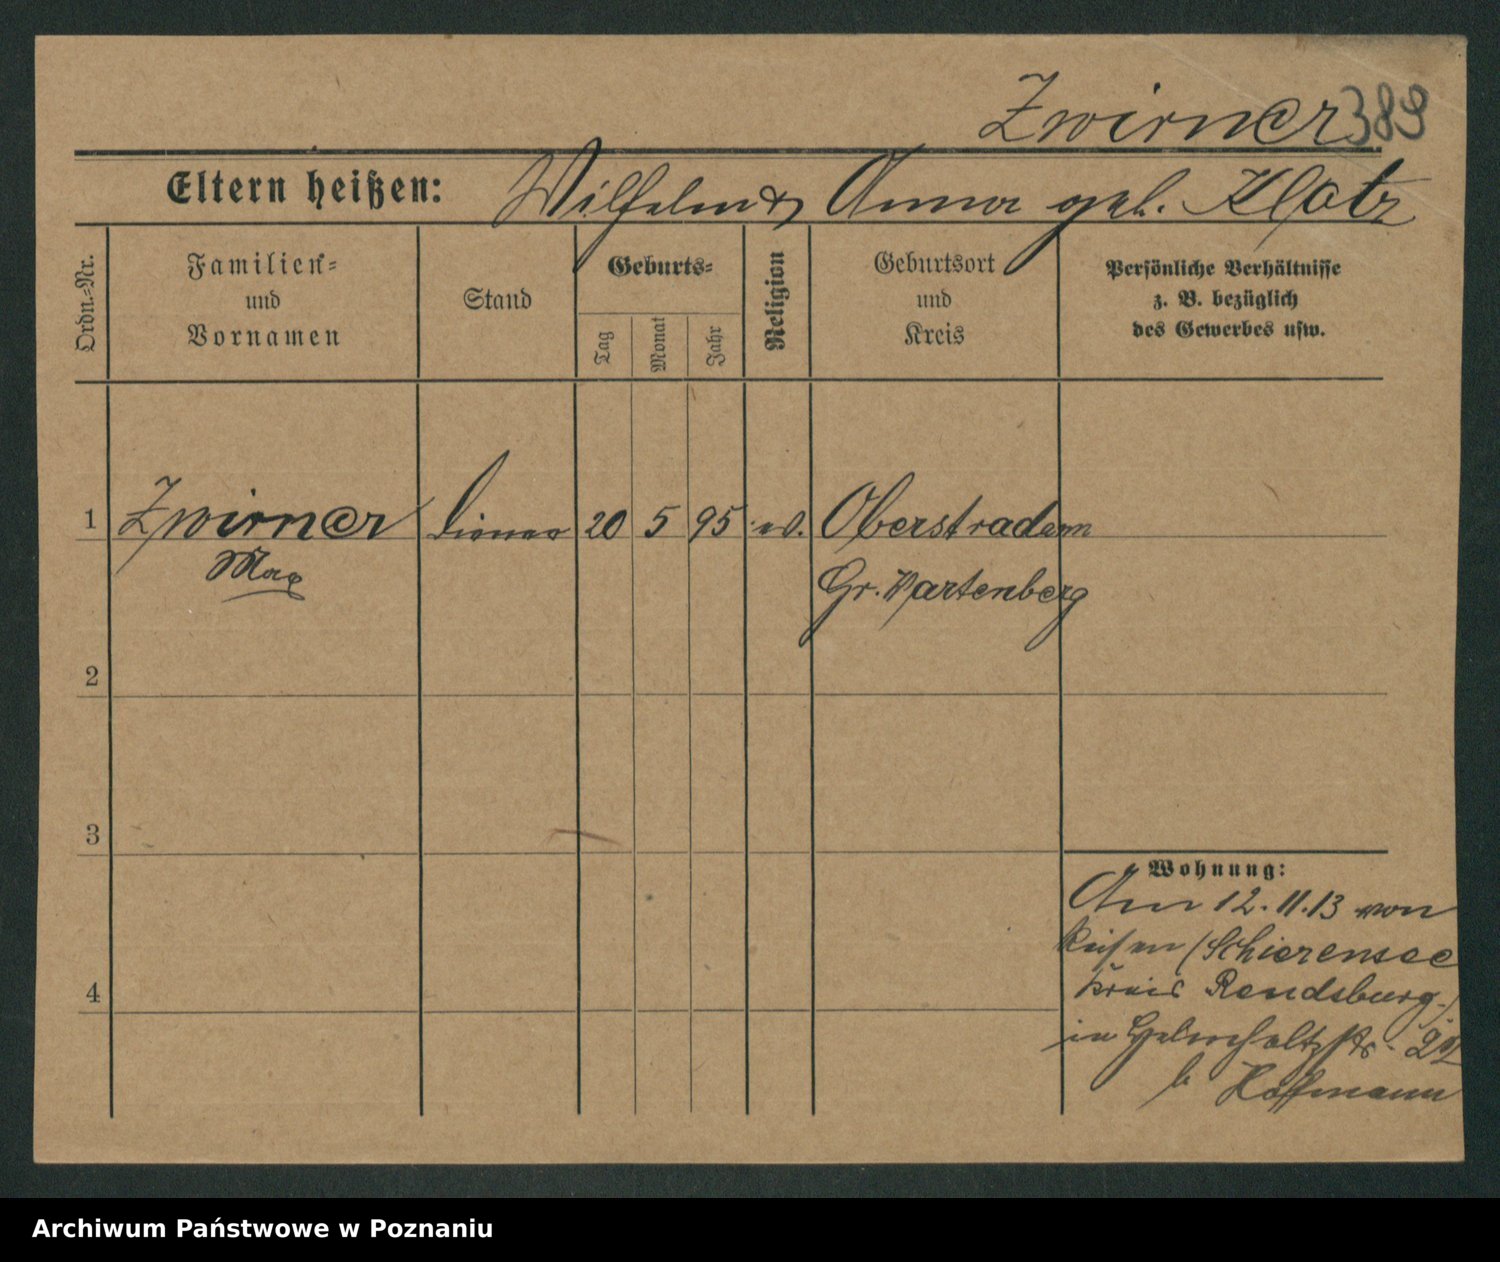 Zwirner 389
Eltern heißen: Wilhelm & Anna geb. Klotz
Ordn.-Nr.
Familien-
und
Vornamen
Stand
Geburts-
Tag
Monat
Jahr
Religion
Geburtsort
und
Kreis
Persönliche Verhältnisse
z. B. bezüglich
des Gewerbes usw.
1 Zwirner Diener 20 5 95 ev. Oberstradam
Max Gr. Wartenberg
2
3
4
Wohnung:
Am 12.11.13 von
Reisen (Schierensee
Kreis Rendsburg)
in Helmholtzstr.
b Hoffmann
Archiwum Państwowe w Poznaniu